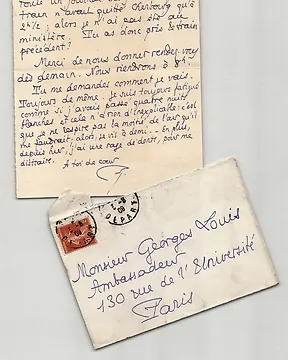 toute un journal
train n'avait quitté Cherbourg qu'à
2h½ ; alors je n'ai pas été au
ministère. Tu as donc pris le
précédent ?
Merci de nous donner rendez-vous
dès demain. Nous viendrons à 8h
Tu me demandes comment je vais.
Toujours de même. Je suis toujours fatigué
comme si j'avais passé quatre nuits
blanches et cela n'a rien d'inexplicable : c'est
que je ne respire pas la moitié de l'air qu'il
me faudrait, alors je vis à demi... En plus,
depuis hier, j'ai une rage de dents, pour me
distraire.
A toi de cœur
P
Monsieur Georges Louis
Ambassadeur
130 rue de l'Université
Paris
DEPART